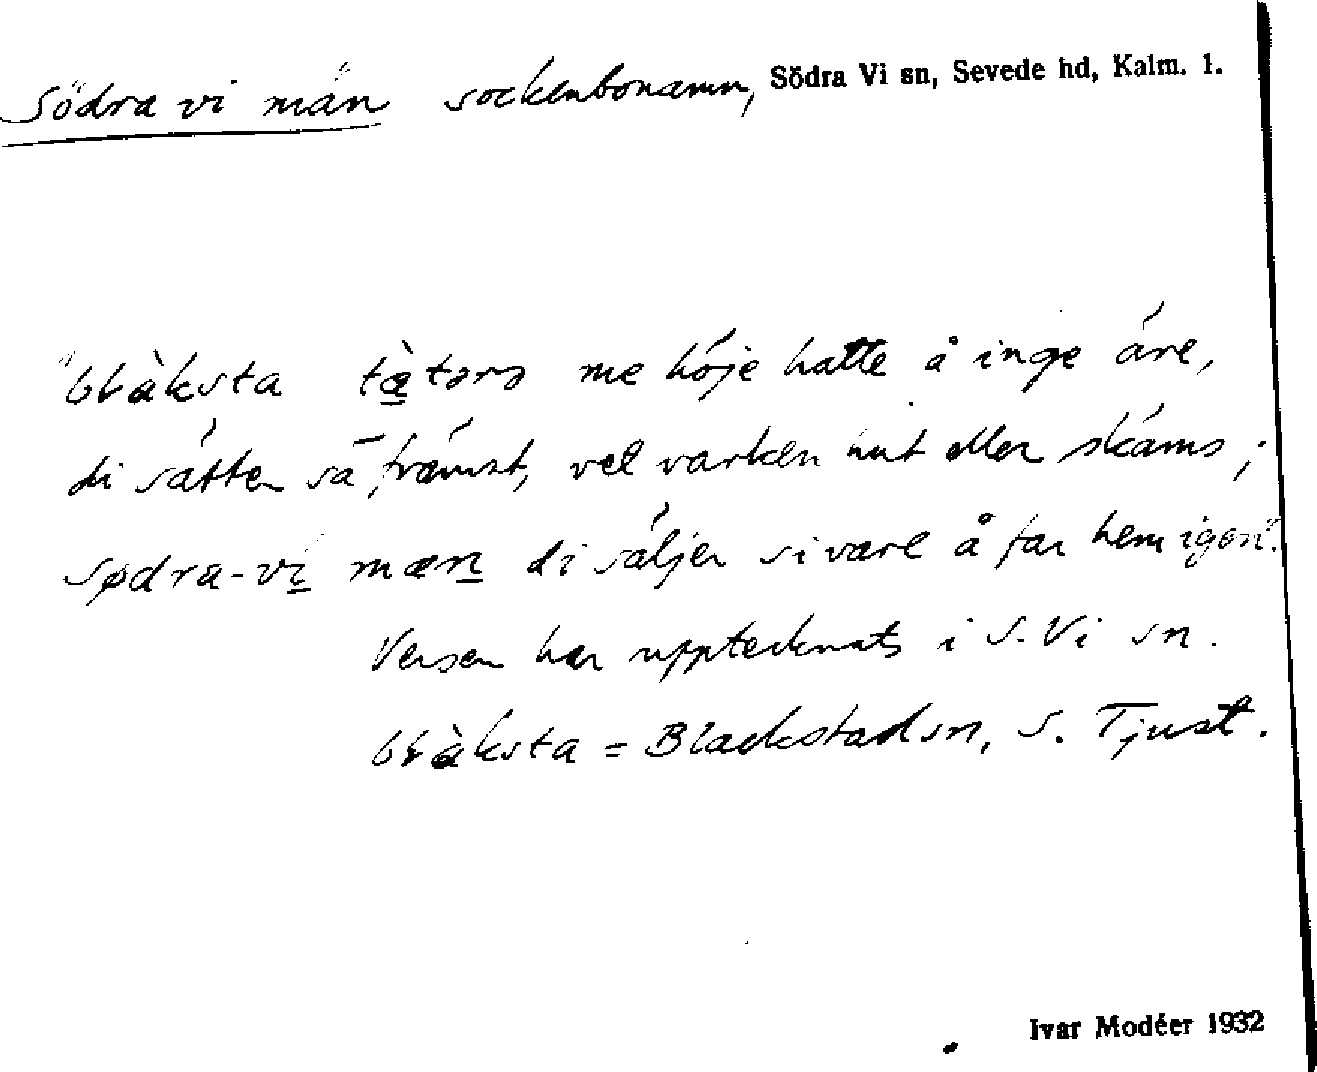 Södra vi män sockenbonamn, Södra Vi sn, Sevede hd, Kalm. l.
"blàksta tætərə me höje hatte å inge äre,
di sätter sä främst, vel varken hut eller skäms;
Sødra-vi mæn di säljer si vare å far hem igen".
Versen har upptecknats i S. Vi sn.
blàksta = Blackstad sn, S. Tjust.
Ivar Modéer 1932